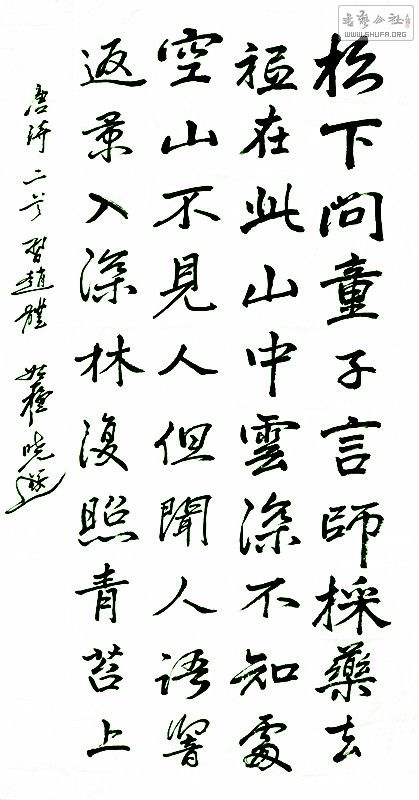 書藝公社
WWW.SHUFA.ORG
松下問童子言師採藥去
祗在此山中雲深不知處
空山不見人但聞人語響
返景入深林復照青苔上
唐詩二首習趙體